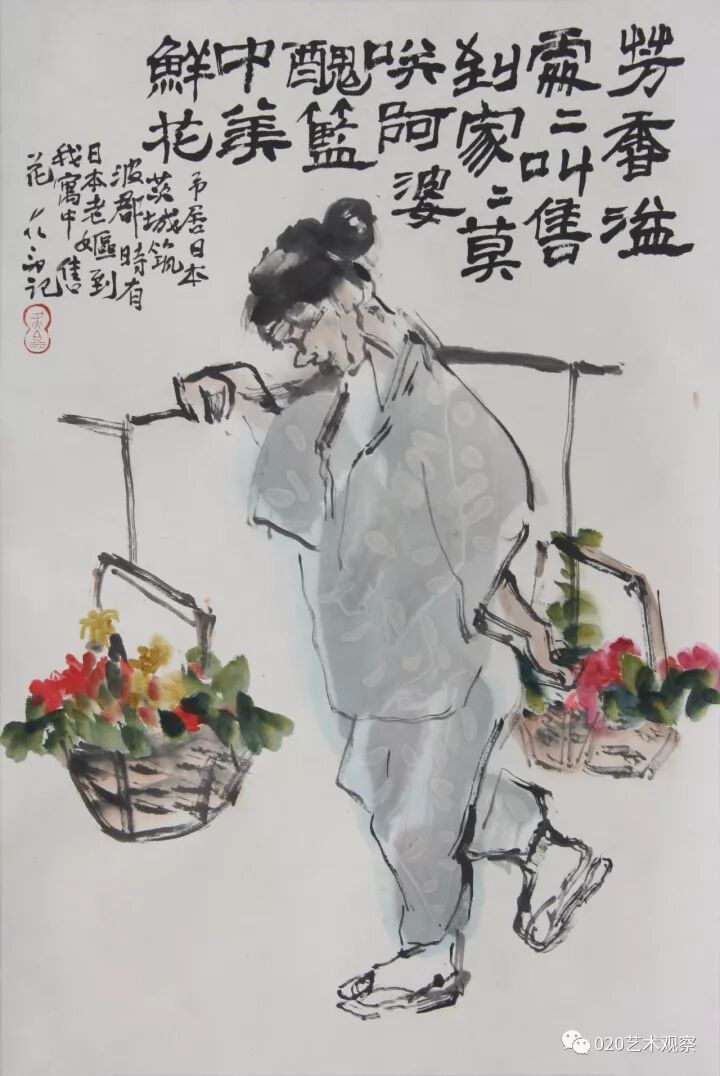 芳香溢
處〻叫售
到家〻莫
咲阿婆
醜籃
中美
鮮花
予居日本
茨城筑
波郡時有
日本老嫗到
我寓中售
花 記
020艺术观察